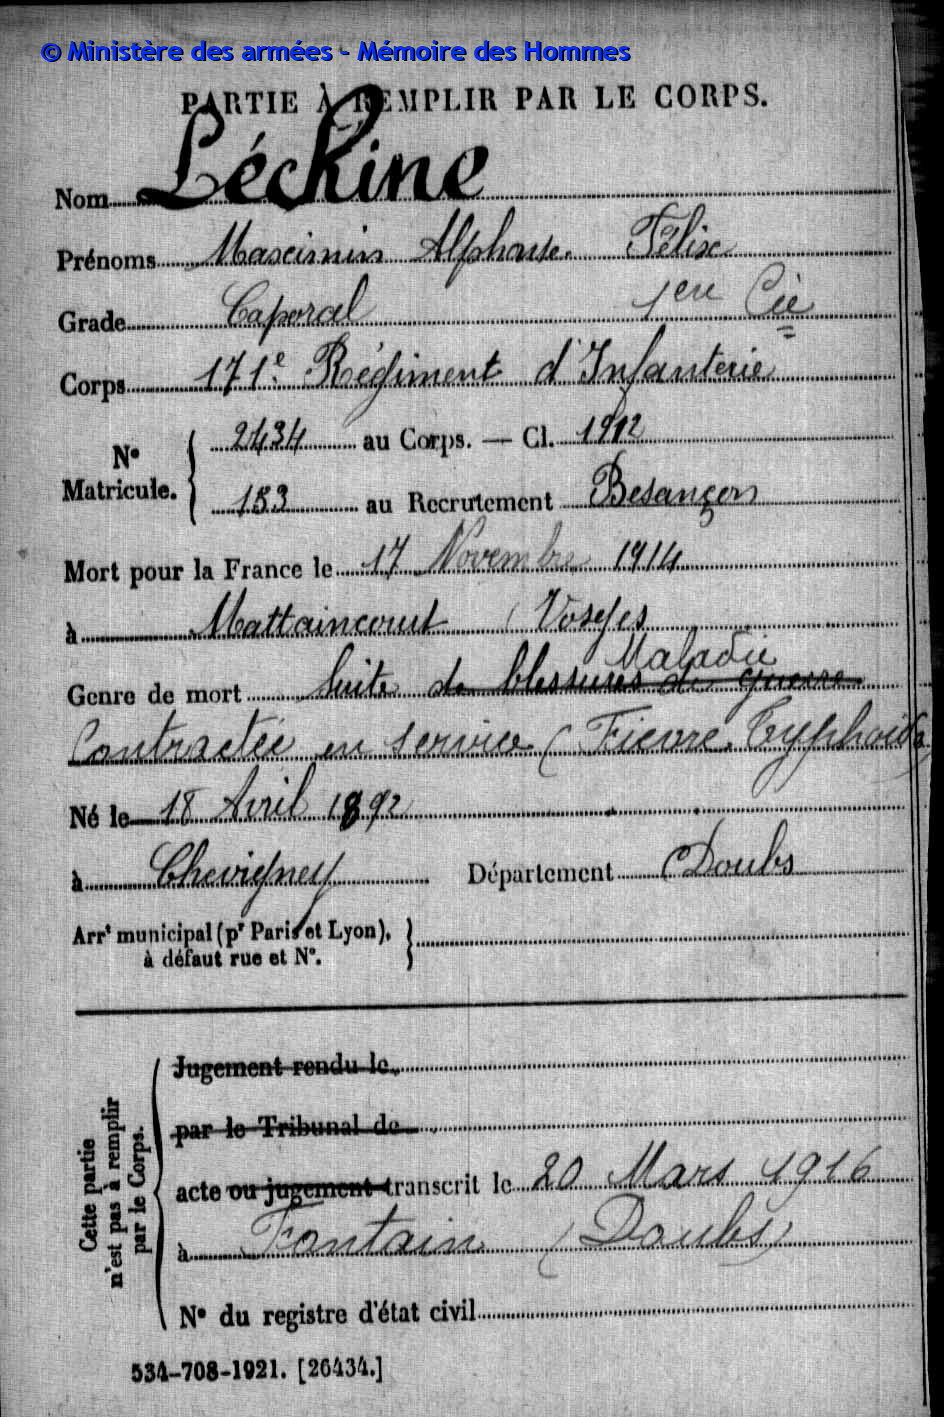 © Ministère des armées - Mémoire des Hommes
PARTIE À REMPLIR PAR LE CORPS.
Nom Léchine
Prénoms Maximin Alphonse Félix
Grade Caporal 1ere Cie
Corps 171e Régiment d'Infanterie
No Matricule. { 2434 au Corps. — Cl. 1912
153 au Recrutement Besançon
Mort pour la France le 17 Novembre 1914
à Mattaincourt (Vosges
Maladie
Genre de mort Suite de blessures de guerre
Contractée en service (Fièvre Typhoïde)
Né le 18 Avril 1892
à Chevigney Département Doubs
Arrt municipal (pr Paris et Lyon),
à défaut rue et No.
Cette partie
n'est pas à remplir
par le Corps.
Jugement rendu le
par le Tribunal de
acte ou jugement transcrit le 20 Mars 1916
à Fontain (Doubs)
No du registre d'état civil
534-708-1921. [26434.]